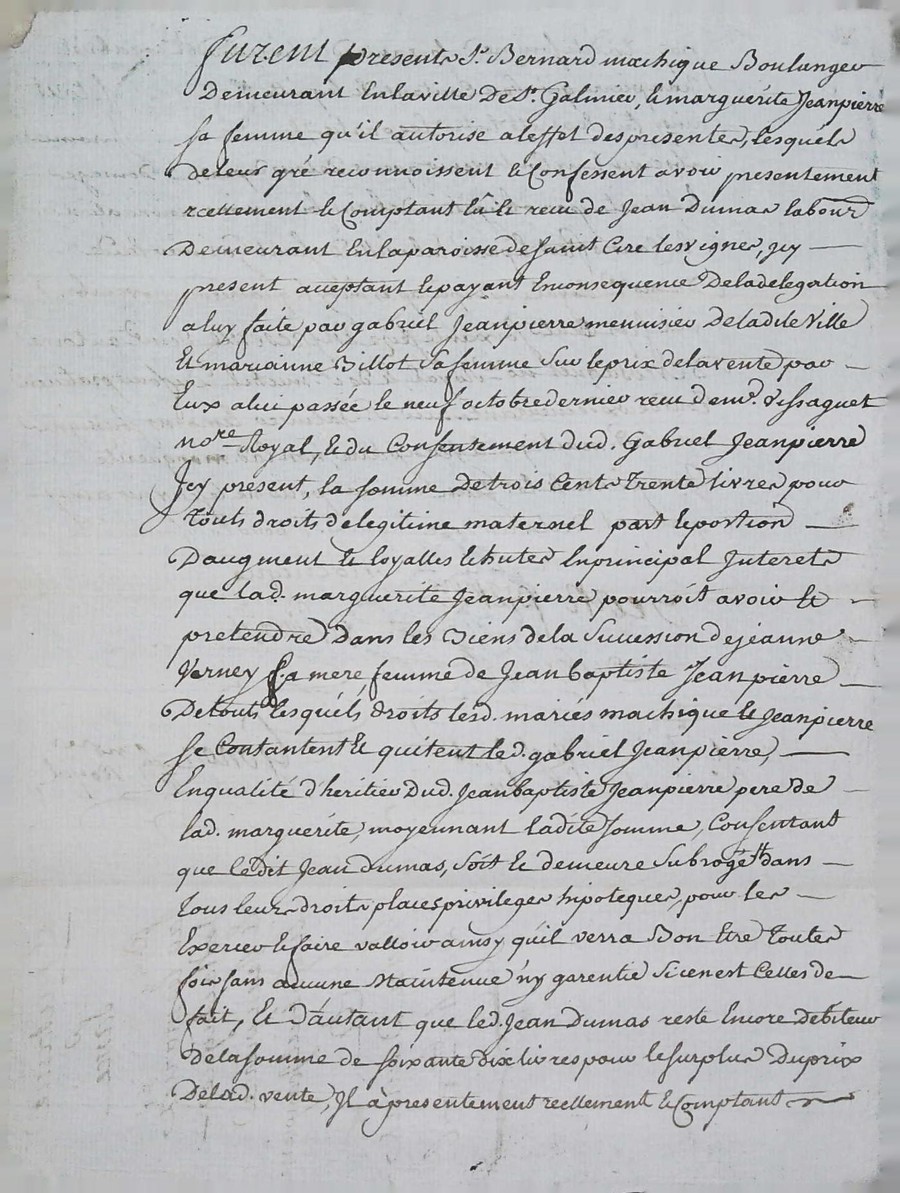 furent presents Sr. Bernard machique Boulanger
Demeurant En la ville De St. Galmier, & marguerite Jeanpierre
sa femme qu'il autorise a leffet des presentes, lesquels
de leur gré reconnoissent & Confessent avoir presentement
reellement & Comptant eû & recu de Jean Dumas labourd
Demeurant En la paroisse de saint Cire les vignes, icy
present acceptant & payant En consequence De la delegation
a luy faite par gabriel Jeanpierre menuisier De ladite Ville
Et marianne Billot sa femme sur le prix de la vente par
Eux a lui passée le neuf octobre dernier recu de me. Vissaguet
nore Royal, & du Consentement dud. Gabriel Jeanpierre
Icy présent, la somme de trois Cents Trente livres pour
touts droits de legitime maternel part & portion
Daugment & loyalles Echutes En principal Interets
que lad. marguerite Jeanpierre pourroit avoir Et
pretendre Dans les Biens de la Succession de jeanne
Verney sa mere femme de Jean baptiste Jeanpierre
De touts lesquéls droits lesd. mariés machique & Jeanpierre
se Contantent Et quitent led. gabriel Jeanpierre,
En qualité d'heritier Dud. Jean baptiste Jeanpierre pere de
lad. marguerite, moyennant ladite somme, Consentant
que le dit Jean dumas, soit Et demeure Subrogé dans
tous leurs droits places privileges hipoteques, pour les
Exercer & faire valloir ainsy qu'il verra Bon Etre Toutes
fois sans aucune Maintenue n'y garentie Si ce n'est Celles de
fait, Et D'autant que led. Jean Dumas reste Encore debiteur
De la somme de soixante dix livres pour le surplus Du prix
De lad. vente, Il à presentement reellement & Comptant